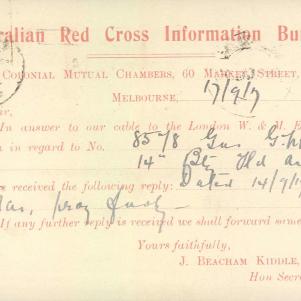 ralian Red Cross Information Bu
Colonial Mutual Chambers, 60 Market Street,
Melbourne, 17/9/17
ar,
In answer to our cable to the London W. & M. E
n in regard to No. 8578 Gnr
14th Bty Fld
s received the following reply: Dated 14/9/1
If any further reply is received we shall forward some
Yours faithfully,
J. Beacham Kiddle,
Hon Secre